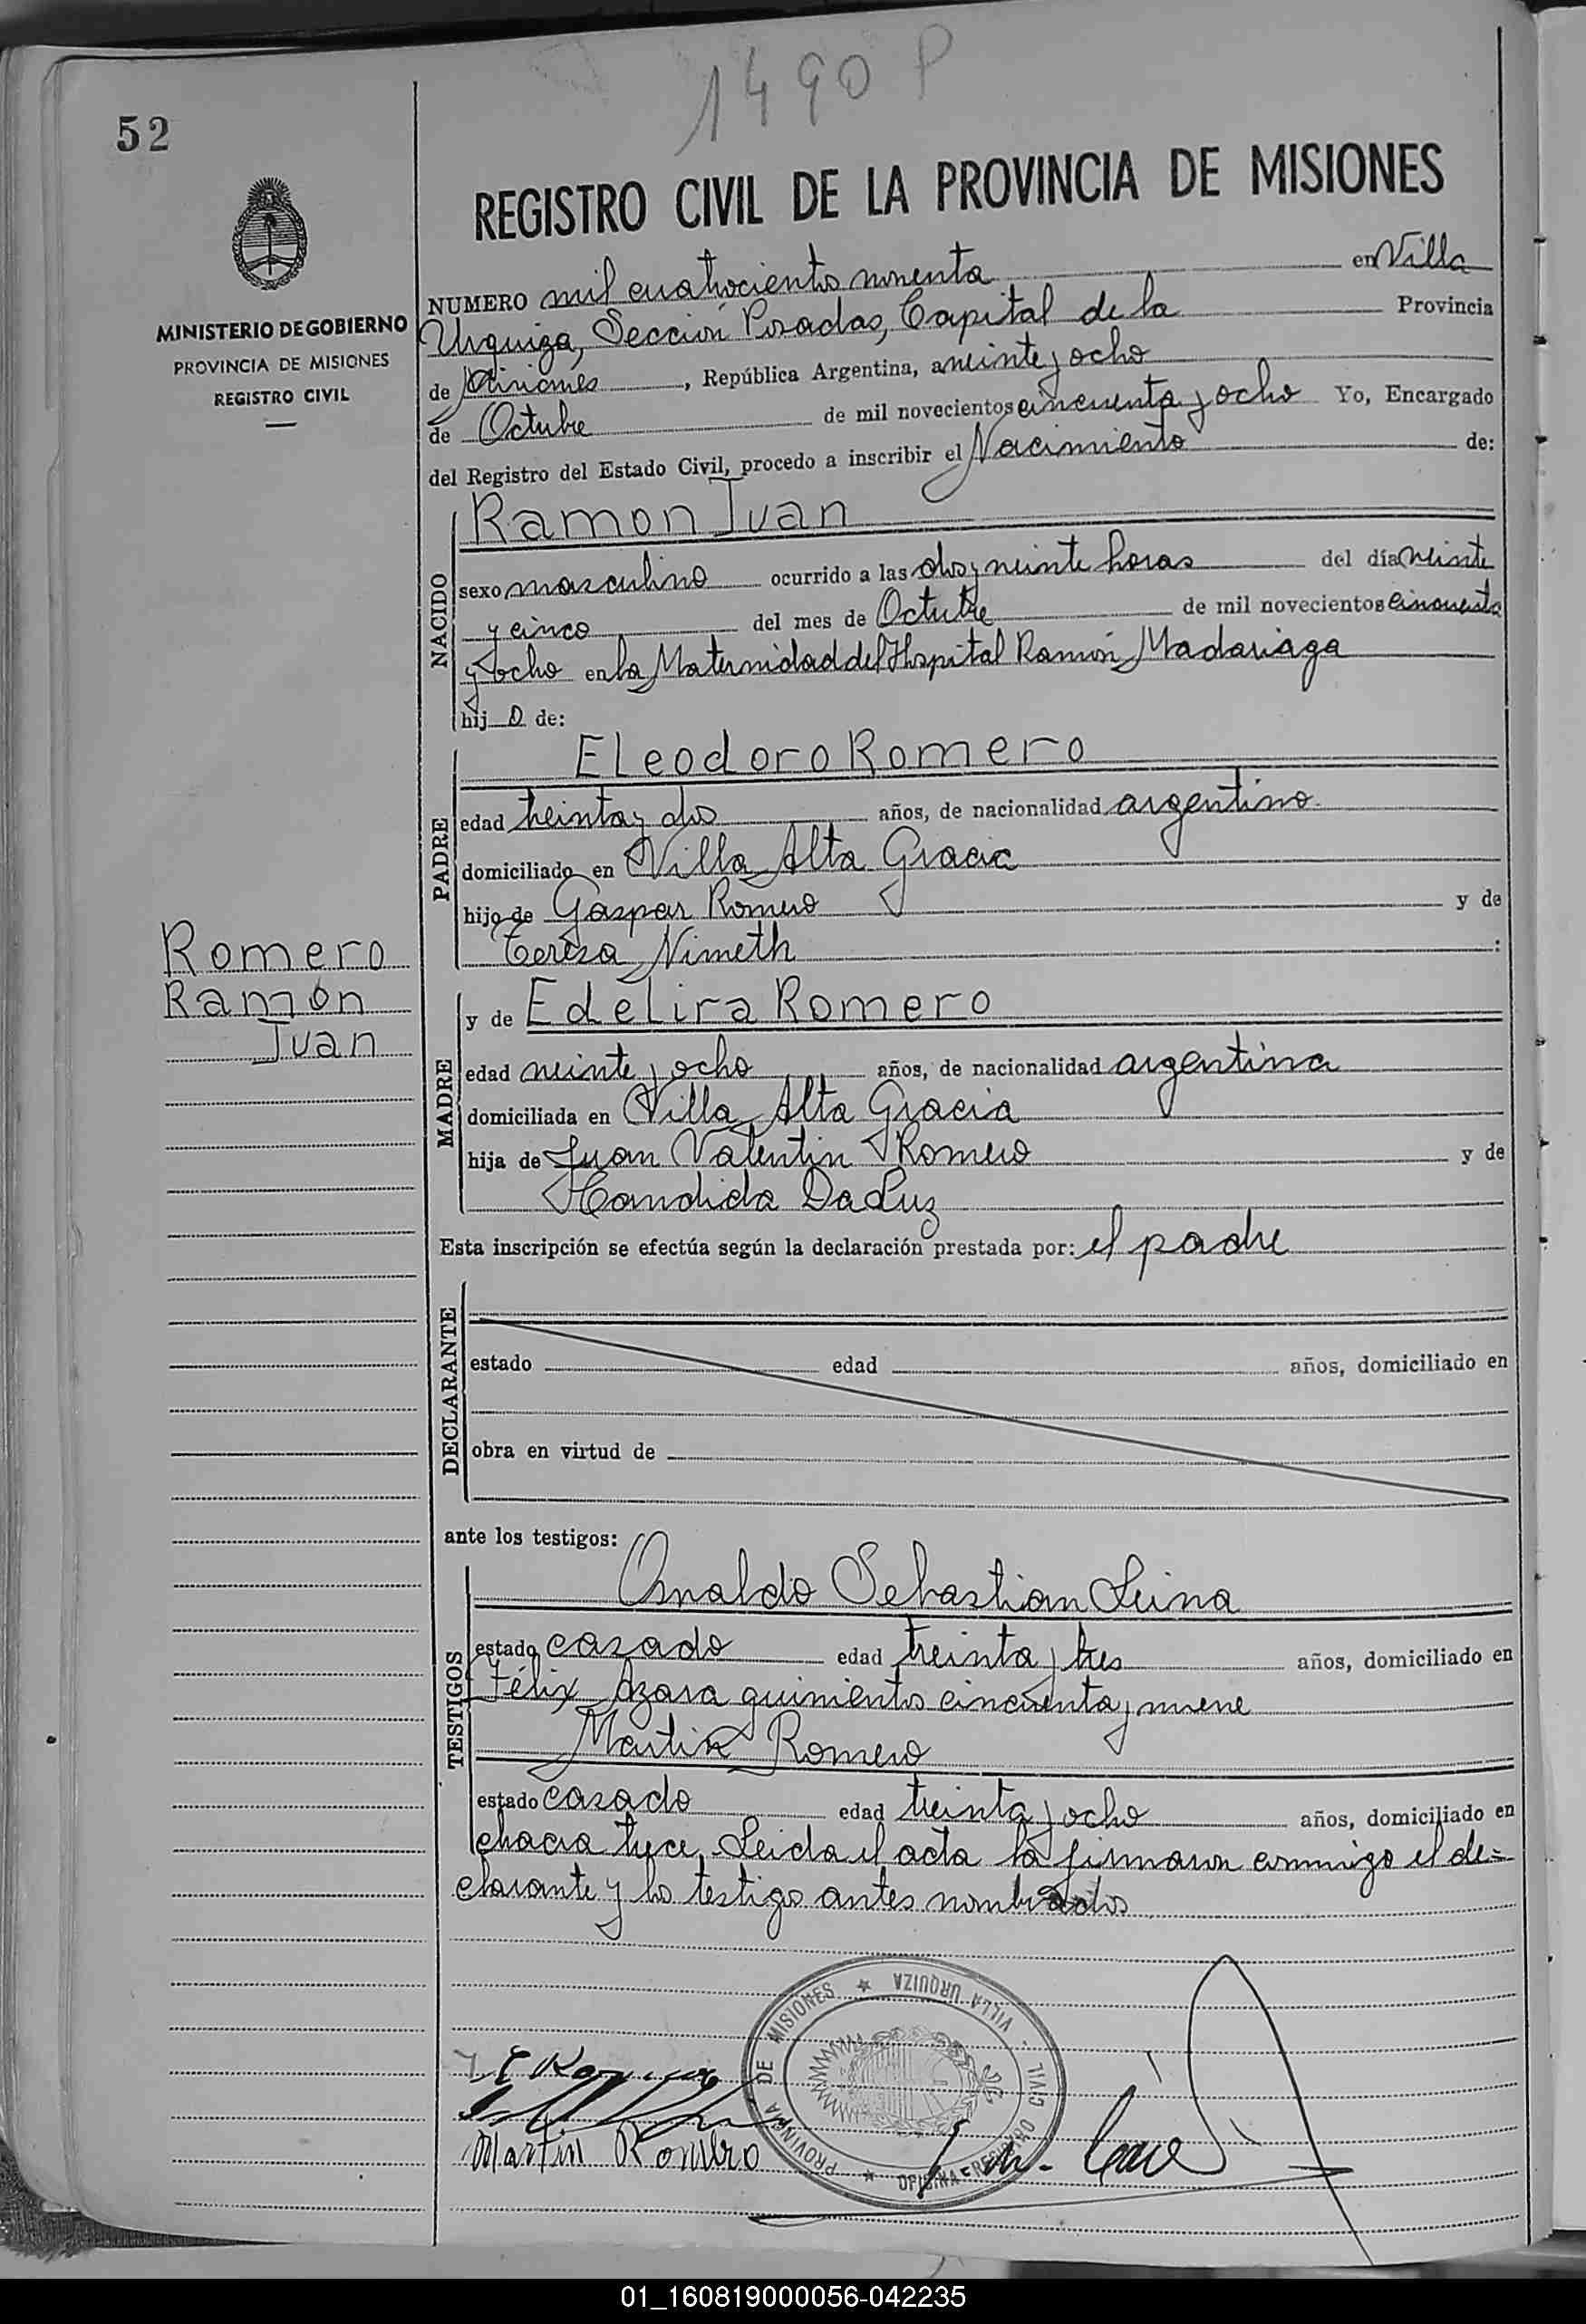 1490 P
52
REGISTRO CIVIL DE LA PROVINCIA DE MISIONES
MINISTERIO DE GOBIERNO
PROVINCIA DE MISIONES
REGISTRO CIVIL
NUMERO mil cuatrocientos noventa en Villa
Urquiza, Sección Posadas, Capital de la Provincia
de Misiones, República Argentina, a veinte y ocho
de Octubre de mil novecientos cincuenta y ocho Yo, Encargado
del Registro del Estado Civil, procedo a inscribir el Nacimiento de:
NACIDO
Ramon Ivan
sexo masculino ocurrido a las dos y veinte horas del día veinte
y cinco del mes de Octubre de mil novecientos cincuenta
y ocho en la Maternidad del Hospital Ramón Madariaga
hijo de:
PADRE
Eleodoro Romero
edad treinta y dos años, de nacionalidad argentino
domiciliado en Villa Alta Gracia
hijo de Gaspar Romero y de
Teresa Nimeth :
Romero
Ramón
Ivan
MADRE
y de Edelira Romero
edad veinte y ocho años, de nacionalidad argentina
domiciliada en Villa Alta Gracia
hija de Juan Valentin Romero y de
Handida Da Luz
Esta inscripción se efectúa según la declaración prestada por: el padre
DECLARANTE
estado edad años, domiciliado en
obra en virtud de
ante los testigos:
TESTIGOS
Osvaldo Sebastian Leiva
estado casado edad treinta y tres años, domiciliado en
Félix Azara quinientos cincuenta y nueve
Martin Romero
estado casado edad treinta y ocho años, domiciliado en
chacra trece. Leida el acta la firmaron conmigo el de=
clarante y los testigo antes nombrados
PROVINCIA DE MISIONES ★ VILLA URQUIZA
OFICINA REGISTRO CIVIL
Martin Romero
01_160819000056-042235